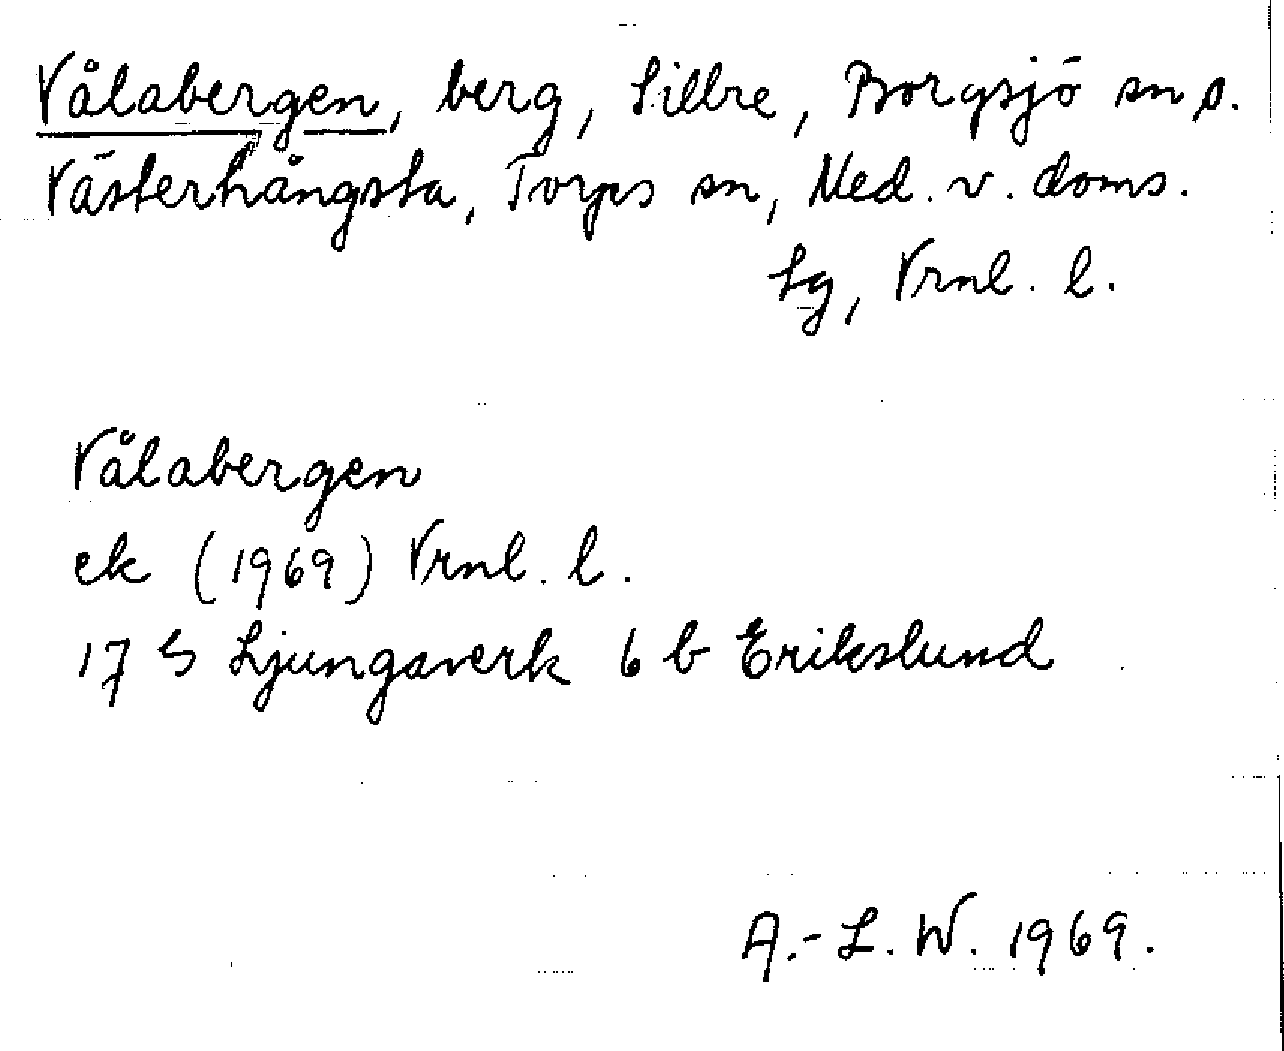 Vålabergen, berg, Sillre, Borgsjö sn o.
Västerhångsta, Torps sn, Med. v. doms.
lg, Vrnl. l.
Vålabergen
ek (1969) Vrnl. l.
17 G Ljungaverk 6 b Erikslund
A.-L. W. 1969.